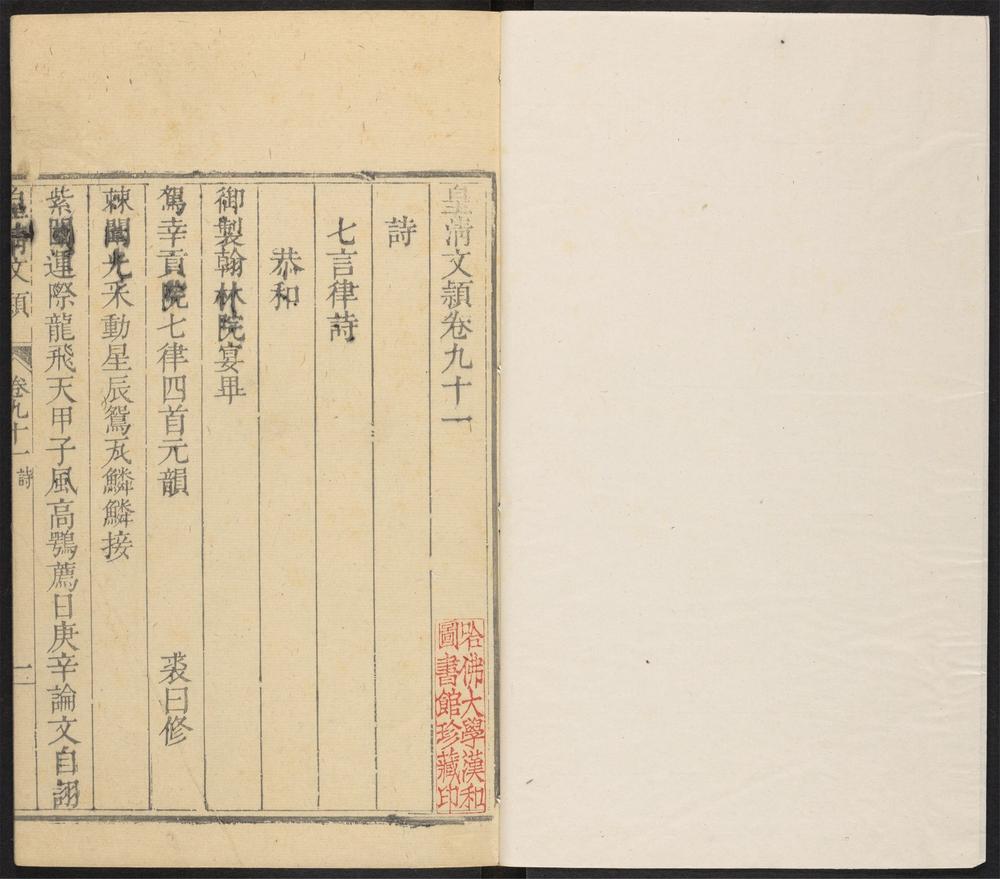 皇清文頴卷九十一
詩
七言律詩
恭和
御製翰林院宴畢
駕幸貢院七律四首元韻
裘曰修
棘闈光采動星辰鴛瓦鱗鱗接
紫閣運際龍飛天甲子風高鶚薦日庚辛論文自詡
皇清文頴
卷九十一
詩
一
哈佛大學漢和
圖書館珍藏印